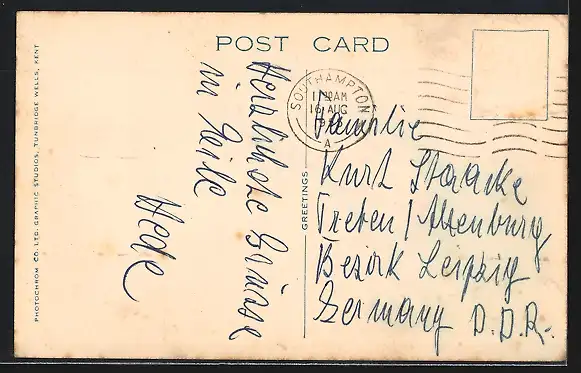 POST CARD
PHOTOCHROM CO. LTD. GRAPHIC STUDIOS, TUNBRIDGE WELLS, KENT
Herzlichste Grüsse
in Eile
Hede
GREETINGS
SOUTHAMPTON
16 AUG
A
Familie
Kurt Staacke
Treben / Altenburg
Bezirk Leipzig
Germany D.D.R.